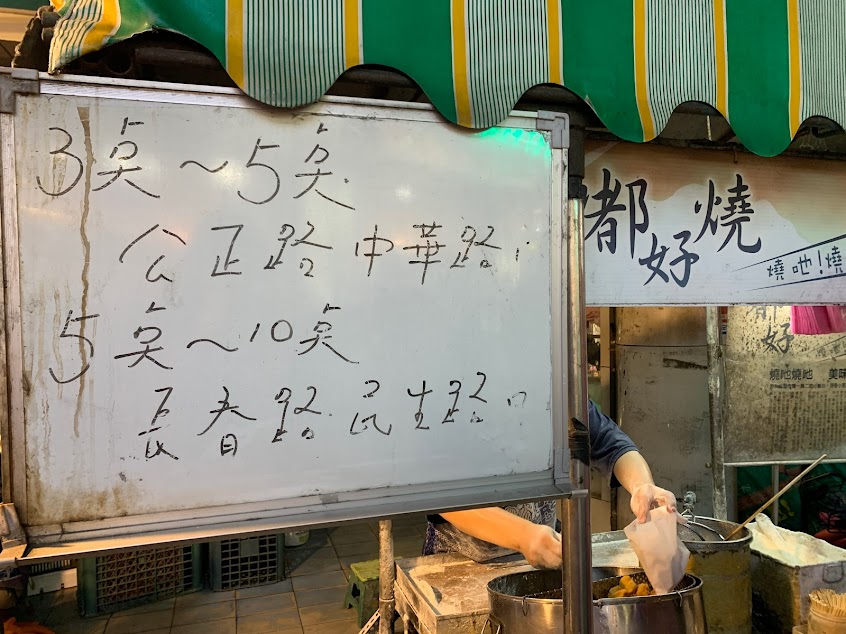 3点～5点
公正路中華路口
5点～10点
長春路民生路口
都好燒
燒吔！燒
好
燒吔燒吔 美味